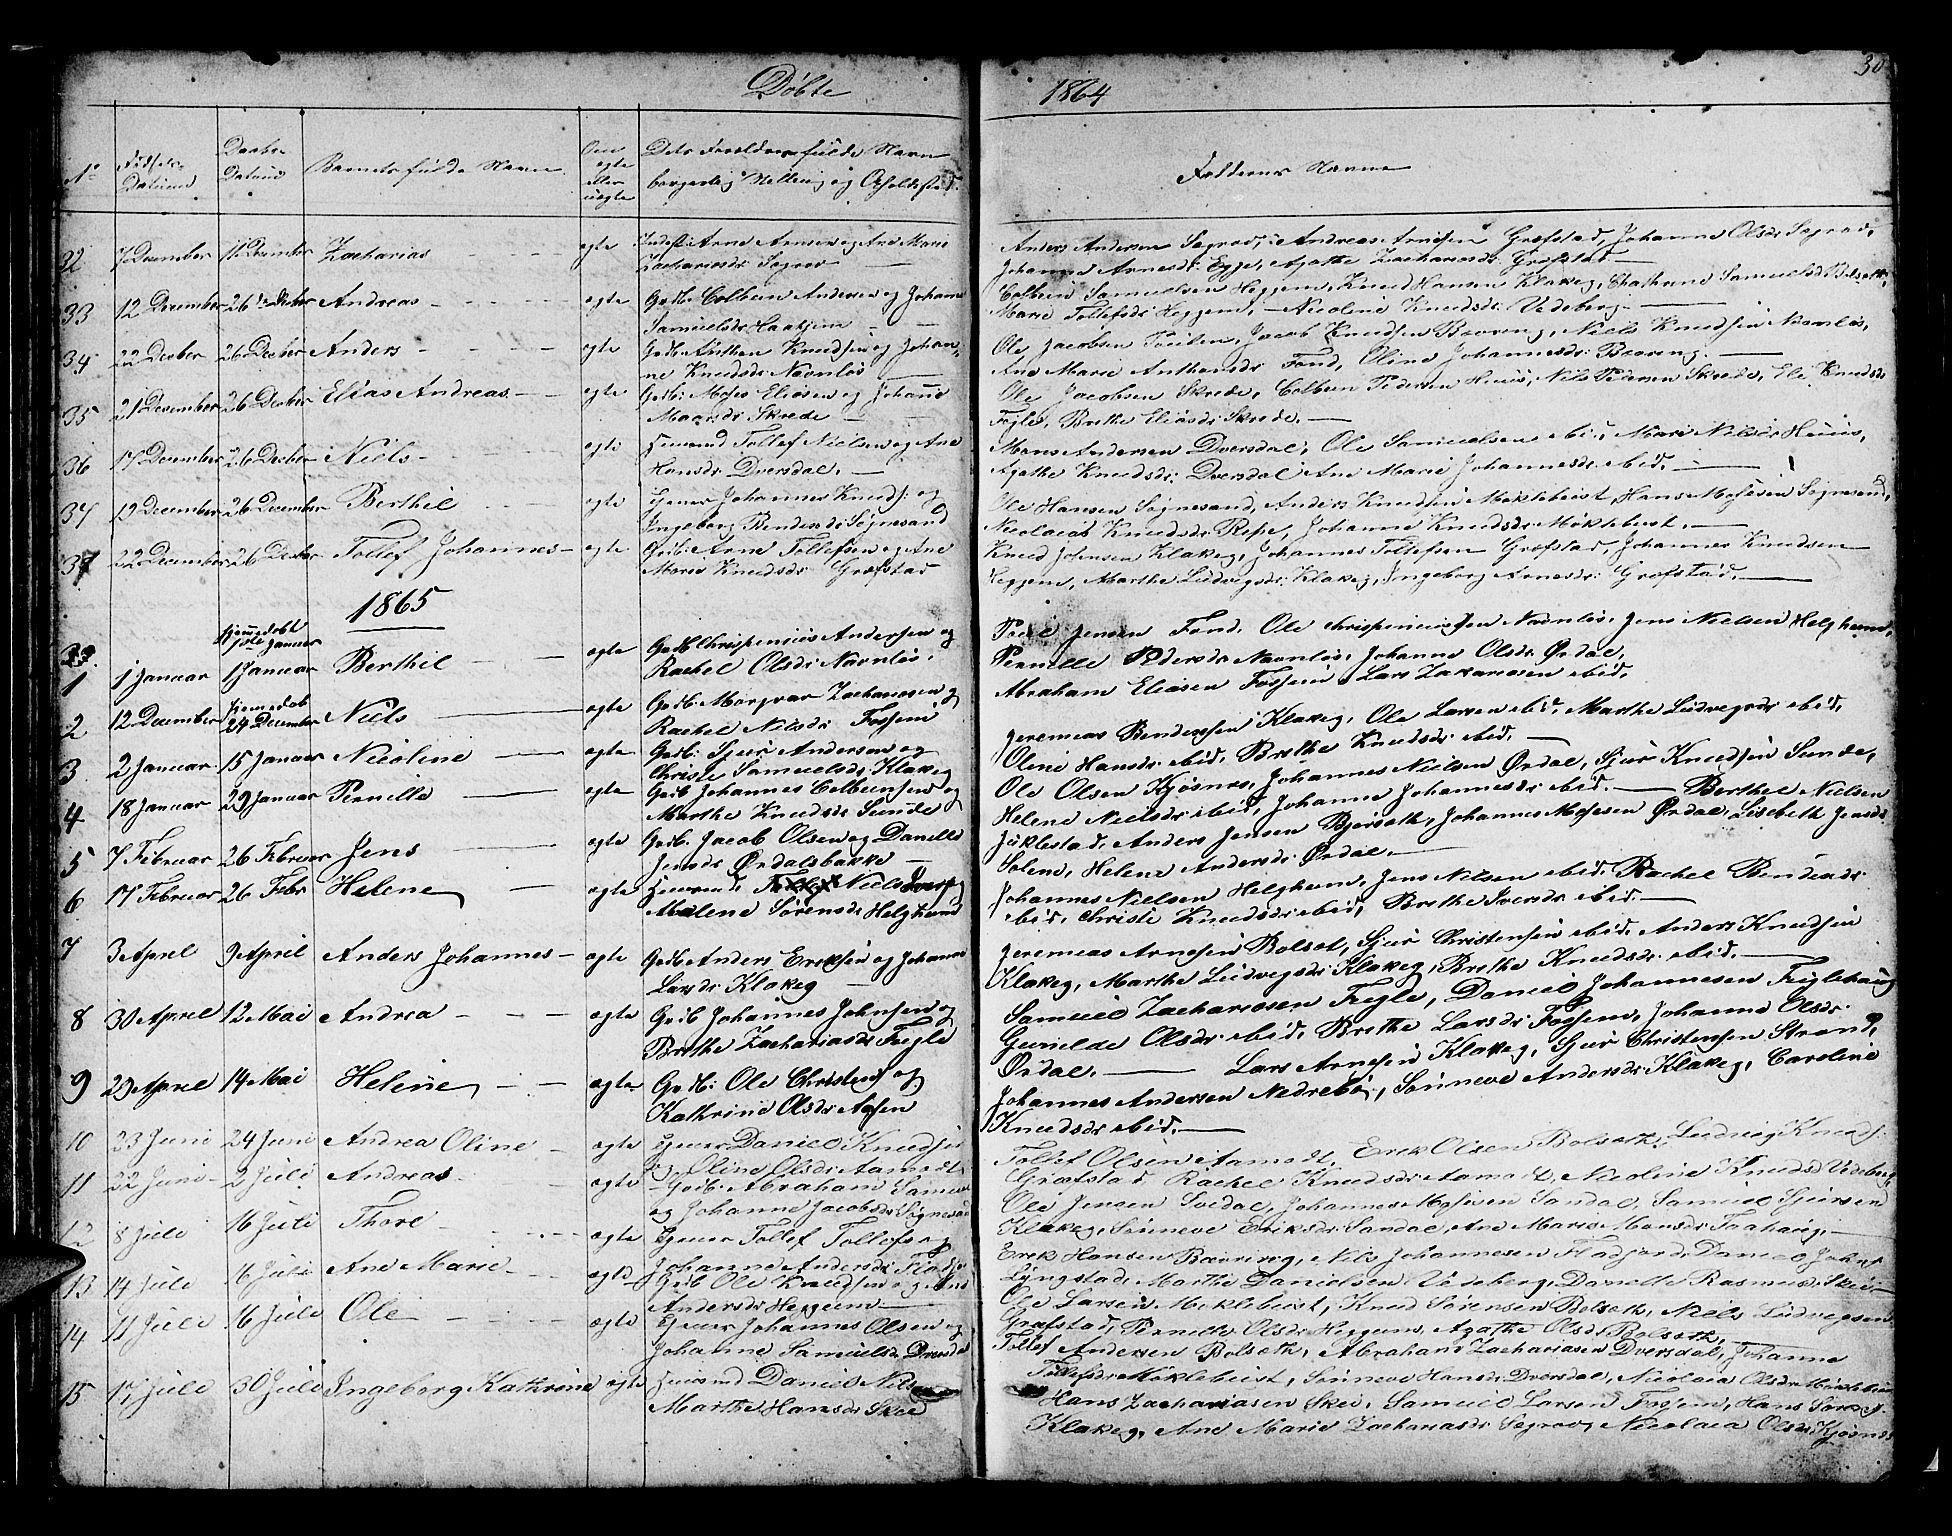 Döbte
1864
30
No
Födsels Datum
Daabs Datum
Barnets fulde Navn
Om ægte eller uægte
Dets Forældres fulde Navn
borgerlig Stilling og Opholdssted.
Faddernes Navne
32 7 December 11 December Zacharias ægte Indst: Arne Arnsen og Ane Marie
Zachariasdr Sogrov
Anders Andersen Sogrov, Andreas Arnesen Græfstad, Johanne Olsdr Sogrov,
Johanne Arnesdr: Egge, Agathe Zachariasdr: Græfstad
33 12 December 26 Decber Andreas ægte Gbd: Colbein Andersen og Johanne
Samuelsdr Haatjem
Colbein Samuelsen Heggem, Knud Hansen Klakeg, Chathrine Samuelsd Bolsæth,
Marie Tollefsdr Heggem, Nicoline Knudsdr: Vedeberg
34 22 Decber 26 Decber Anders ægte Gbd: Anthon Knudsen og Johan-
ne Knudsdr Navnløs
Ole Jacobsen Tveiten, Jacob Knudsen Bovring, Niels Knudsen Navnløs,
Ane Marie Anthonsdr Fond, Oline Johannesdr: Bovring.
35 21 December 26 Decber Elias Andreas ægte Gbd: Moses Eliasen og Johanne
Monsdr Skrede
Ole Jacobsen Skrede, Colbein Pedersen Huus, Nils Pedersen Skrede, Eli Knudsdr
Fegle, Brethe Eliasdr Skrede.
36 17 December 26 Decber Niels ægte Huusmd Tollef Nielsen og Ane
Hansdr Dversdal,
Mons Andersen Dversdal, Ole Samuelsen ibid, Mari Nilsdr Huus,
Agathe Knudsdr: Dversdal Ane Marie Johannesdr: ibid.
37 19 December 26 December Berthil ægte Gjever Johannes Knuds: og
Ingeborg Bendiksdr Søgnesand
Ole Hansen Søgnesand, Anders Knudsen Møklebust, Hans Mosesen Søgnesand,
Nicolai Knudsdr Reße, Johanne Knudsdr Møklebust.
38 22 December 26 Decber Tollef Johannes ægte Gbd: Arne Tollefsen og Ane
Marie Knudsdr Græfstad
Knud Johnsen Klakeg, Johannes Tollefsen Græfstad, Johannes Knudsen
Heggem, Marthe Ludvigsdr: Klakeg, Ingeborg Arnesdr: Græfstad.
1865
hjemmedøbt
1ste Januar
1 1 Januar 1 Januar Berthil ægte Gbd Chrispenius Andersen og
Rachel Olsdr Navnløs.
Peder Jensen Fond, Ole Chrispeniussen Navnløs, Jens Nielsen Helgheim,
Pernille Pedersdr Navnløs, Johanne Olsdr Ørdal,
2 12 December hjemmedøb 24 December Niels ægte Gbd: Morgvar Zachariasen og
Rachel Nilsdr Fossem
Abraham Eliasen Fossem, Lars Zakariasen ibid.
3 2 Januar 15 Januar Nicoline ægte Gbd: Sjur Andersen og
Christi Samuelsdr Klakeg
Jeremias Bendixsen Klakeg, Ole Larsen ibid, Marthe Ludvegsdr ibid,
Oline Hansdr ibid, Brethe Knudsdr ibid.
4 18 Januar 29 Januar Pernille ægte Gbd Johannes Colbeinsen og
Marthe Knudsdr Sunde
Ole Olsen Kjøsnes, Johannes Nielsen Ørdal, Sjur Knudsen Sunde,
Helene Nielsdr ibid, Johanne Johannesdr ibid.
5 7 Februar 26 Februar Jens ægte Gbd: Jacob Olsen og Danelle
Jensdr Ørdalsbakke
Berthel Nielsen
Jüklestad, Anders Jensen Bjørseth, Johannes Mosesen Ørdal, Lisebeth Jensdr
Solem, Helene Andersdr Ørdal.
6 17 Februar 26 Febr Helene ægte Huusmd. Niels Ivers og
Malene Sørensdr Helgheim
Johannes Nielsen Helgheim, Jens Nielsen ibid, Rachel Bendixsdr
ibid, Christi Knudsdr ibid, Brethe Iversdr ibid.
7 3 April 9 April Anders Johannes ægte Gbd Anders Eriksen og Johanne
Larsdr Klakeg
Jeremias Arnesen Bolset, Sjur Christensen ibid, Anders Knudsen
Klakeg, Marthe Ludvegsdr Klakeg, Brethe Knudsdr ibid.
8 30 April 12 Mai Andrea ægte Gbd Johannes Johnsen og
Brethe Zachariasdr Fegle
Samuel Zachariasen Fegle, Daniel Johannesen Feglehaug
Gunilde Olsdr ibid, Brethe Larsdr Fossem, Johanne Olsdr
Ørdal.
9 29 April 14 Mai Helene ægte Gbd: Ole Christens og
Kathrine Olsdr Aasen
Lars Arnesen Klakeg, Sjur Christensen Strand,
Johannes Andersen Nedrebø, Sønneve Andersdr Klakeg, Caroline
Knudsdr ibid.
10 23 Juni 24 Juni Andrea Oline ægte Gjever Daniel Knudsen
og Oline Olsdr Aamodt
Tollef Olsen Aamodt, Erek Olsen Bolseth, Ludvig Knuds:
Græfstad, Rachel Knudsdr Aamot, Nicoline Knudsd Vedeberg
11 22 Juni 2 Juli Andreas ægte Gbd: Abraham Samuels
og Johanne Jacobsdr Sögnesand
Ole Jensen Svedal, Johannes Mosesen Sandal, Samuel Sjursen
Klakeg, Sønneve Eriksdr Sandal, Ane Marie Monsdr Faahaug,
12 8 Juli 16 Juli Thore ægte Gjever Tollef Tollefs og
Johanne Andersdr Fladjord
Erek Hansen Bovring, Nils Johannesen Fladjord, Daniel Johns
Lÿngstad, Marthe Danielsen Vedeberg, Danelle Rasmusd: Skei
13 14 Juli 16 Juli Ane Marie ægte Gbd Ole Knudsen og Ane
Andersdr Heggem
Ole Larsen Møklebust, Knud Sørensen Bolseth, Niels Ludvegsen
Græfstad, Pernille Olsdr Heggem, Agathe Olsd Bolseth,
14 11 Juli 16 Juli Ole ægte Gjever Johannes Olsen og
Johanne Samuelsdr Dversdal
Tollef Andersen Bolseth, Abraham Zachariasen Dversdal, Johanne
Tollefsdr Møklebust, Sønneve Hansd: Dversdal, Nicolaia Olsdr Møklebust
15 17 Juli 30 Juli Ingeborg Kathrine ægte Huusmd Daniel Nils
Marthe Hansdr Skei
Hans Zachariasen Skei, Samuel Larsen Fossem, Hans Larsen
Klakeg, Ane Marie Zachariasdr Sogrov, Nicolaia Olsdr Kjøsnes